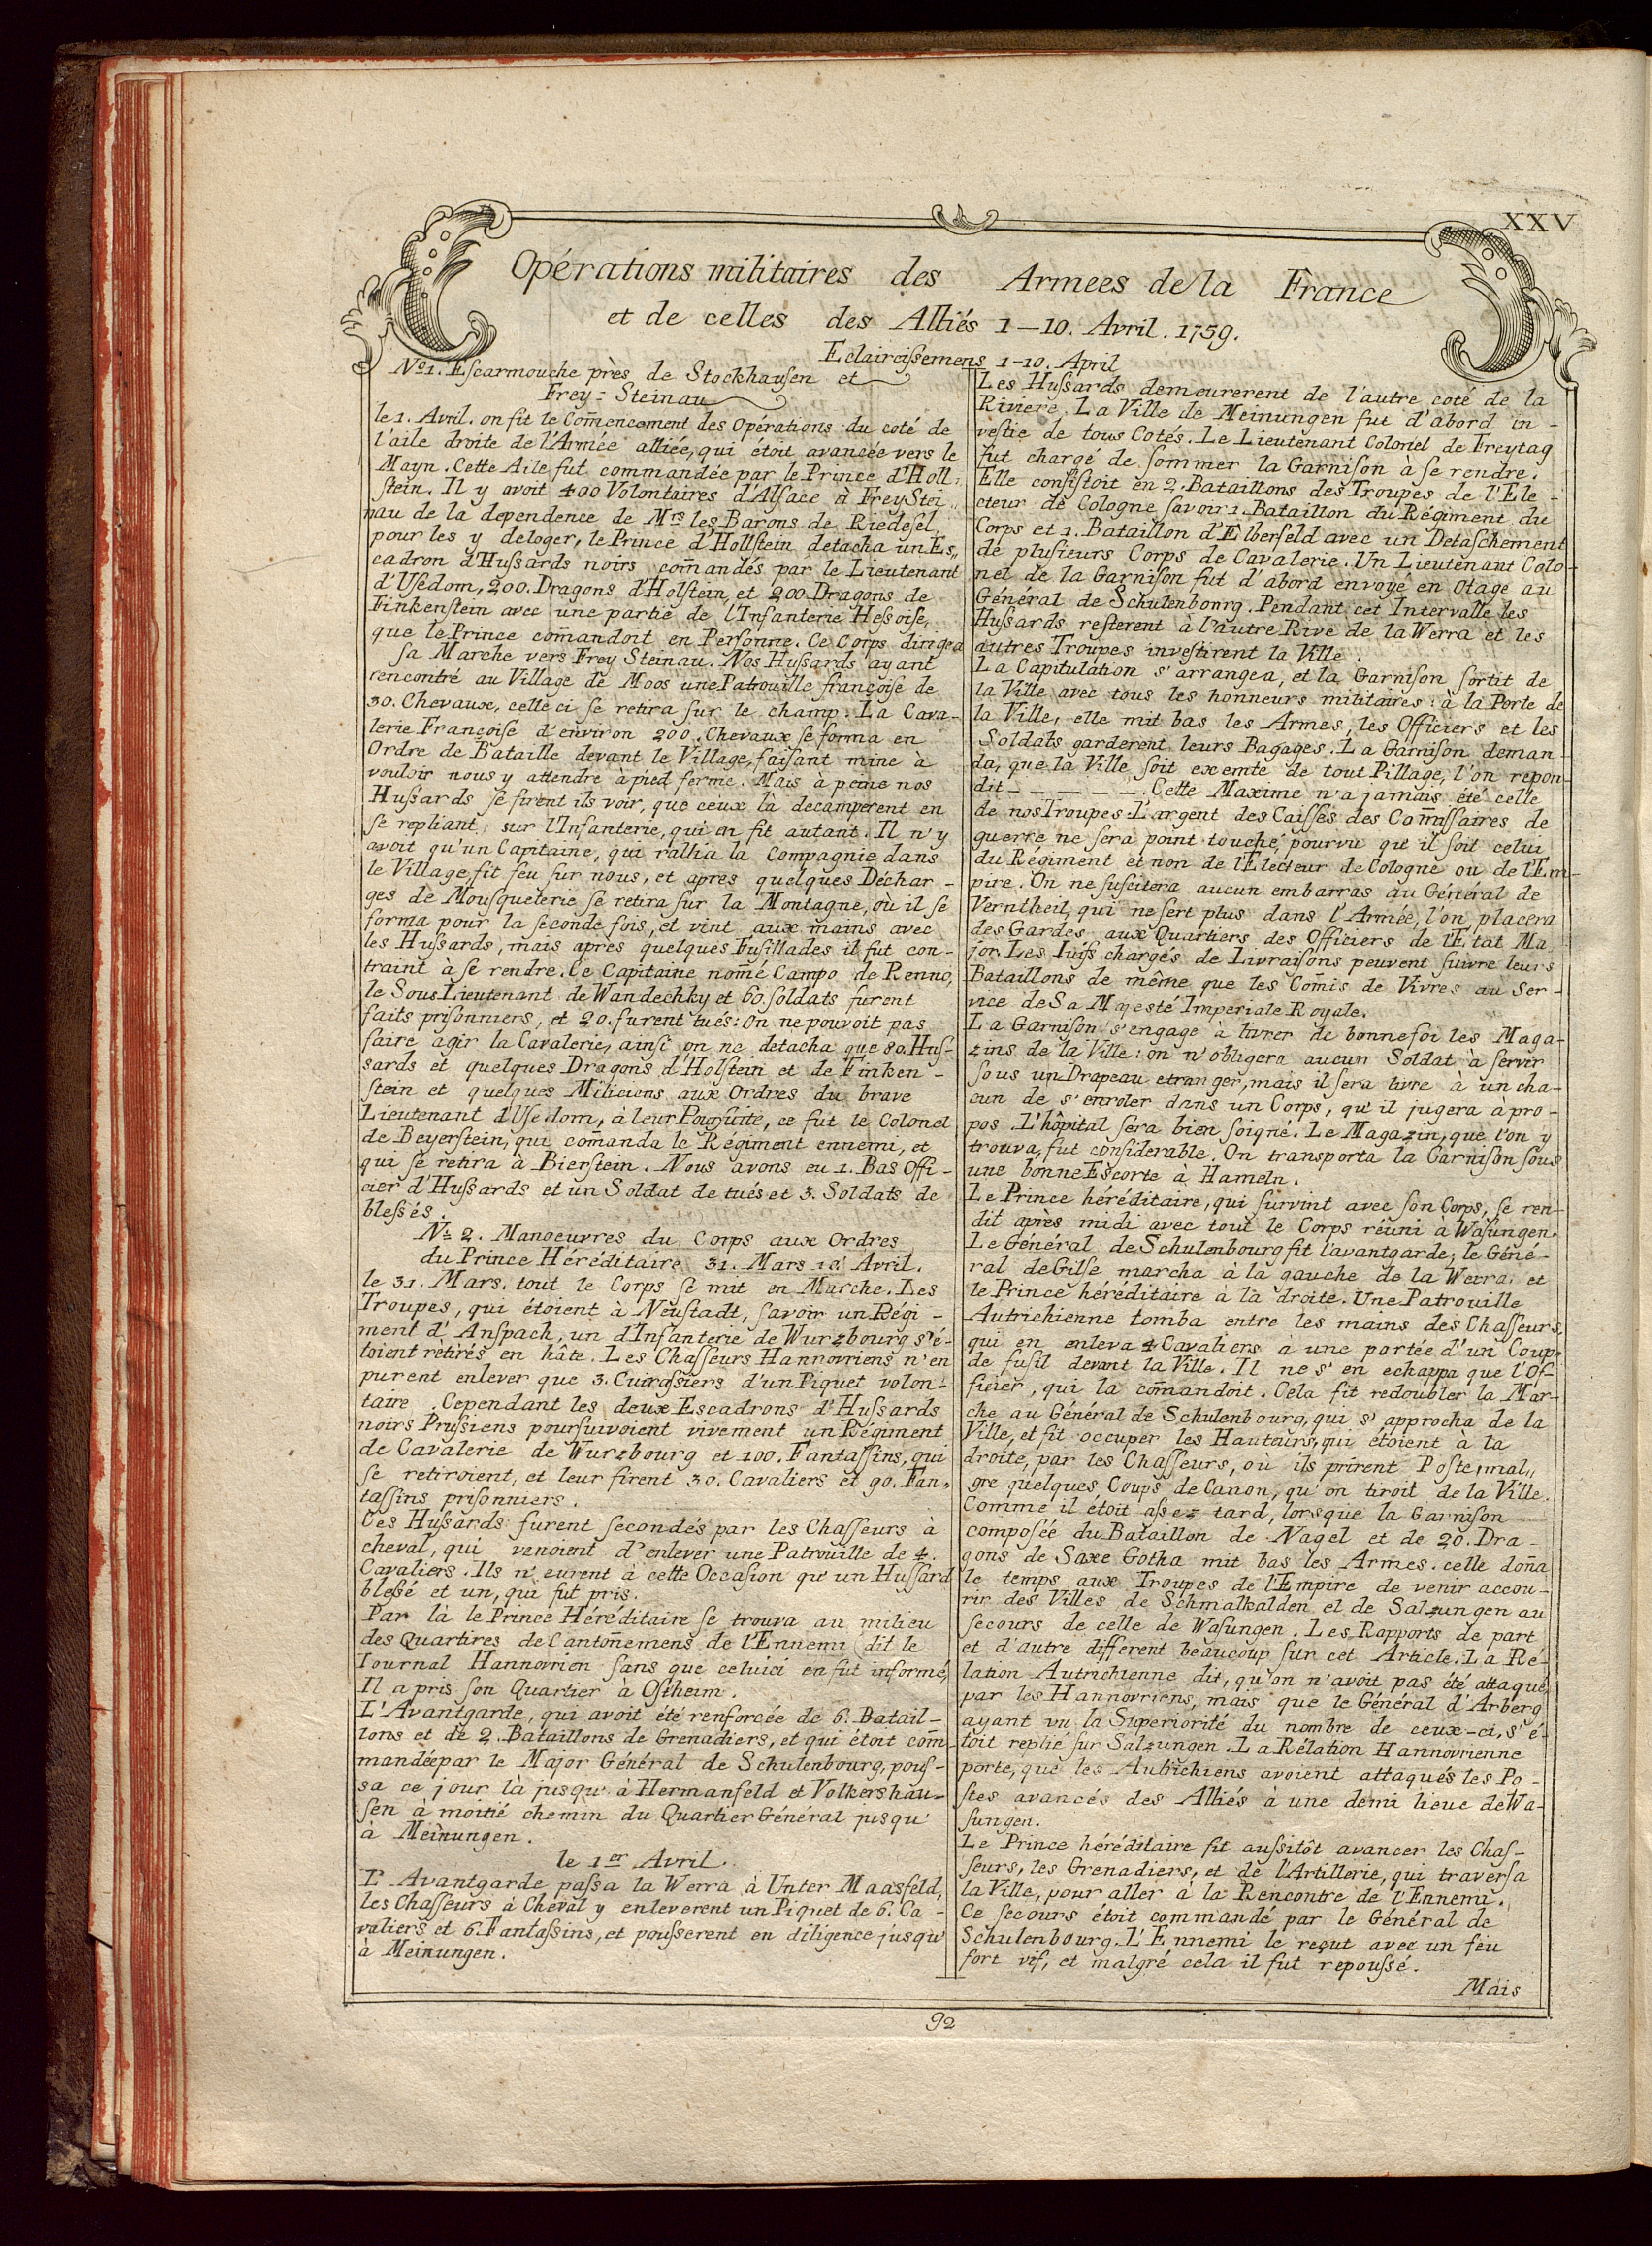 XXV
Opérations militaires des Armees de la France
et de celles des Alliés 1—10. Avril. 1759.
Eclaircißemens 1-10. April
No1. Eſcarmouche près de Stockhauſen et
Frey=Steinau
le 1. Avril. on fit le Com̄encement des Opérations du coté de
l'aile droite de l'Armée alliée, qui étoit avancée vers le
Mayn. Cette Aile fut commandée par le Prince d'Holl-
ſtein. Il y avoit 400 Volontaires d'Alſace à FreyStei„
nau de la dependence de Mrs les Barons de Riedeſel
pour les y deloger, le Prince d'Hollſtein detacha un Es„
cadron d'Hußards noirs com̄andés par le Lieutenant
d'Uſedom, 200. Dragons d'Holſtein, et 200 Dragons de
Finkenſtein avec une partie de l'Infanterie Heßoiſe,
que le Prince com̄andoit en Perſonne. Ce Corps dirigea
ſa Marche vers Frey Steinau. Nos Hußards ayant
rencontré au Village de Moos une Patrouille françoiſe de
30. Chevaux, celle ci ſe retira ſur le champ. La Cava-
lerie Françoiſe d'environ 200. Chevaux ſe forma en
Ordre de Bataille devant le Village, faiſant mine à
vouloir nous y attendre à pied ferme. Mais à peine nos
Hußards ſe firent ils voir, que ceux là decamperent en
ſe repliant ſur l'Infanterie, qui en fit autant. Il n'y
avoit qu'un Capitaine, qui rallia la Compagnie dans
le Village, fit feu ſur nous, et apres quelques Déchar-
ges de Mousqueterie ſe retira ſur la Montagne, où il ſe
forma pour la ſeconde fois, et vint aux mains avec
les Hußards, mais apres quelques Fuſillades il fut con-
traint à ſe rendre. Ce Capitaine nom̄é Campo de Renno,
le Sous Lieutenant de Wandechky et 60. ſoldats furent
faits priſonniers, et 20. furent tués: On ne pouvoit pas
faire agir la Cavalerie, ainſi on ne detacha que 80. Huſ-
sards et quelques Dragons d'Holſtein et de Finken-
ſtein et quelques Miliciens aux Ordres du brave
Lieutenant d'Uſedom, à leur Pourſuite, ce fut le Colonel
de Beyerſtein, qui com̄anda le Régiment ennemi, et
qui ſe retira à Bierſtein. Nous avons eu 1. Bas Offi-
cier d'Hußards et un Soldat de tués et 3. Soldats de
bleßés.
No. 2. Manoeuvres du Corps aux Ordres
du Prince Héréditaire 31. Mars 10. Avril.
le 31. Mars. tout le Corps ſe mit en Marche. Les
Troupes, qui étoient à Neuſtadt, ſavoir un Régi-
ment d'Anſpach, un d'Infanterie de Wurzbourg s'é-
toient retirés en hâte. Les Chaſſeurs Hannovriens n'en
purent enlever que 3. Cuiraßiers d'un Piquet volon-
taire. Cependant les deux Escadrons d'Hußards
noirs Prußiens pourſuivoient vivement un Régiment
de Cavalerie de Wurzbourg et 100. Fantaſſins, qui
ſe retiroient, et leur firent 30. Cavaliers et 90. Fan-
taſſins priſonniers.
Ces Hußards furent ſecondés par les Chaſſeurs à
cheval, qui venoient d'enlever une Patrouille de 4.
Cavaliers. Ils n'eurent à cette Occaſion qu'un Huſſard
bleßé et un, qui fut pris.
Par là le Prince Héréditaire ſe trouva au milieu
des Quartires de Canton̄emens de l'Ennemi (dit le
Iournal Hannovrien ſans que celuici en fut informé,
Il a pris ſon Quartier à Oſtheim.
L'Avantgarde, qui avoit été renforcée de 6. Batail-
lons et de 2. Bataillons de Grenadiers, et qui étoit com̄-
mandée par le Major Général de Schulenbourg, pouſ-
sa ce jour là jusqu'à Hermanſeld et Volkershau-
ſen à moitié chemin du Quartier Général jusqu'
à Meinungen.
le 1er Avril.
L'Avantgarde paßa la Werra à Unter Maasfeld,
les Chaſſeurs à Cheval y enleverent un Piquet de 6. Ca-
valiers et 6. Fantaßins, et pouſſerent en diligence jusqu'
à Meinungen.
Les Hußards demeurerent de l'autre coté de la
Riviere. La Ville de Meinungen fut d'abord in-
veſtie de tous Cotés. Le Lieutenant Colonel de Freytag
fut chargé de ſommer la Garniſon à ſe rendre.
Elle conſiſtoit en 2. Bataillons des Troupes de l'Ele-
cteur de Cologne ſavoir 1. Bataillon du Régiment du
Corps et 1. Bataillon d'Elberfeld avec un Detaſchement
de pluſieurs Corps de Cavalerie. Un Lieutenant Colo-
nel de la Garniſon fut d'abord envoyé en Otage au
Général de Schulenbourg. Pendant cet Intervalle les
Hußards reſterent à l'autre Rive de la Werra et les
autres Troupes inveſtirent la Ville.
La Capitulation s'arrangea, et la Garniſon ſortit de
la Ville avec tous les honneurs militaires: à la Porte de
la Ville, elle mit bas les Armes, les Officiers et les
Soldats garderent leurs Bagages. La Garniſon deman-
da, que la Ville ſoit exemte de tout Pillage, l'on repon-
dit — — — — —. Cette Maxime n'a jamais été celle
de nos Troupes. L'argent des Caiſſes des Com̄iſſaires de
guerre ne ſera point touché, pourvu qu'il ſoit celui
du Régiment et non de l'Electeur de Cologne ou de l'Em-
pire. On ne ſuſcitera aucun embarras au Général de
Verntheil, qui ne ſert plus dans l'Armée, l'on placera
des Gardes aux Quartiers des Officiers de l'Etat Ma
jor. Les Iuifs chargés de Livraiſons peuvent ſuivre leurs
Bataillons de même que les Com̄is de Vivres au Ser-
vice de Sa Majesté Imperiale Royale.
La Garniſon s'engage à livrer de bonne foi les Maga-
zins de la Ville: on n'obligera aucun Soldat à ſervir
ſous un Drapeau etranger, mais il ſera livre à un cha-
cun de s'enroler dans un Corps, qu'il jugera à pro-
pos. L'hôpital ſera bien ſoigné. Le Magazin, que l'on y
trouva, fut conſiderable. On transporta la Garniſon ſous
une bonne Escorte à Hameln.
Le Prince héréditaire, qui ſurvint avec ſon Corps, ſe ren-
dit après midi avec tout le Corps réuni a Waſungen.
Le Général de Schulenbourg fit l'avantgarde; le Géné-
ral de Gilſe marcha à la gauche de la Werra, et
le Prince héréditaire a la droite. Une Patrouille
Autrichienne tomba entre les mains des Chaſſeurs,
qui en enleva 4 Cavaliers à une portée d'un Coup
de fuſil devant la Ville. Il ne s'en echappa que l'Of-
ficier, qui la com̄andoit. Cela fit redoubler la Mar-
che au Général de Schulenbourg, qui s'approcha de la
Ville, et fit occuper les Hauteurs, qui étoient à la
droite, par les Chaſſeurs, où ils prirent Poste, mal„
gre quelques Coups de Canon, qu'on tiroit de la Ville.
Comme il étoit aßez tard, lorsque la Garniſon
compoſée du Bataillon de Nagel et de 20. Dra-
gons de Saxe Gotha mit bas les Armes. celle don̄a
le temps aux Troupes de l'Empire de venir accou-
rir des Villes de Schmalkalden et de Salzungen au
ſecours de celle de Waſungen. Les Rapports de part
et d'autre different beaucoup ſur cet Article. La Ré-
lation Autrichienne dit, qu'on n'avoit pas été attaqué
par les Hannovriens, mais que le Général d'Arberg
ayant vu la Superiorité du nombre de ceux-ci, s'é-
toit replié ſur Salzungen. La Rélation Hannovrienne
porte, que les Autrichiens avoient attaqués les Po-
ſtes avancés des Alliés à une demi lieue de Wa-
ſungen.
Le Prince héréditaire fit außitôt avancer les Chaſ-
seurs, les Grenadiers, et de l'Artillerie, qui traverſa
la Ville, pour aller à la Rencontre de l'Ennemi.
Ce ſecours étoit commandé par le Général de
Schulenbourg. L'Ennemi le reçut avec un feu
fort vif, et malgré cela il fut repouſſé.
Mais
92